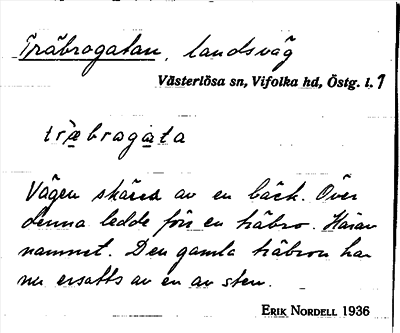 Träbrogatan, landsväg
Västerlösa sn, Vifolka hd, Östg. l. 1
træ̀bragata
Vägen skäres av en bäck. Över
denna ledde förr en träbro. Härav
namnet. Den gamla träbron har
nu ersatts av en av sten.
ERIK NORDELL 1936